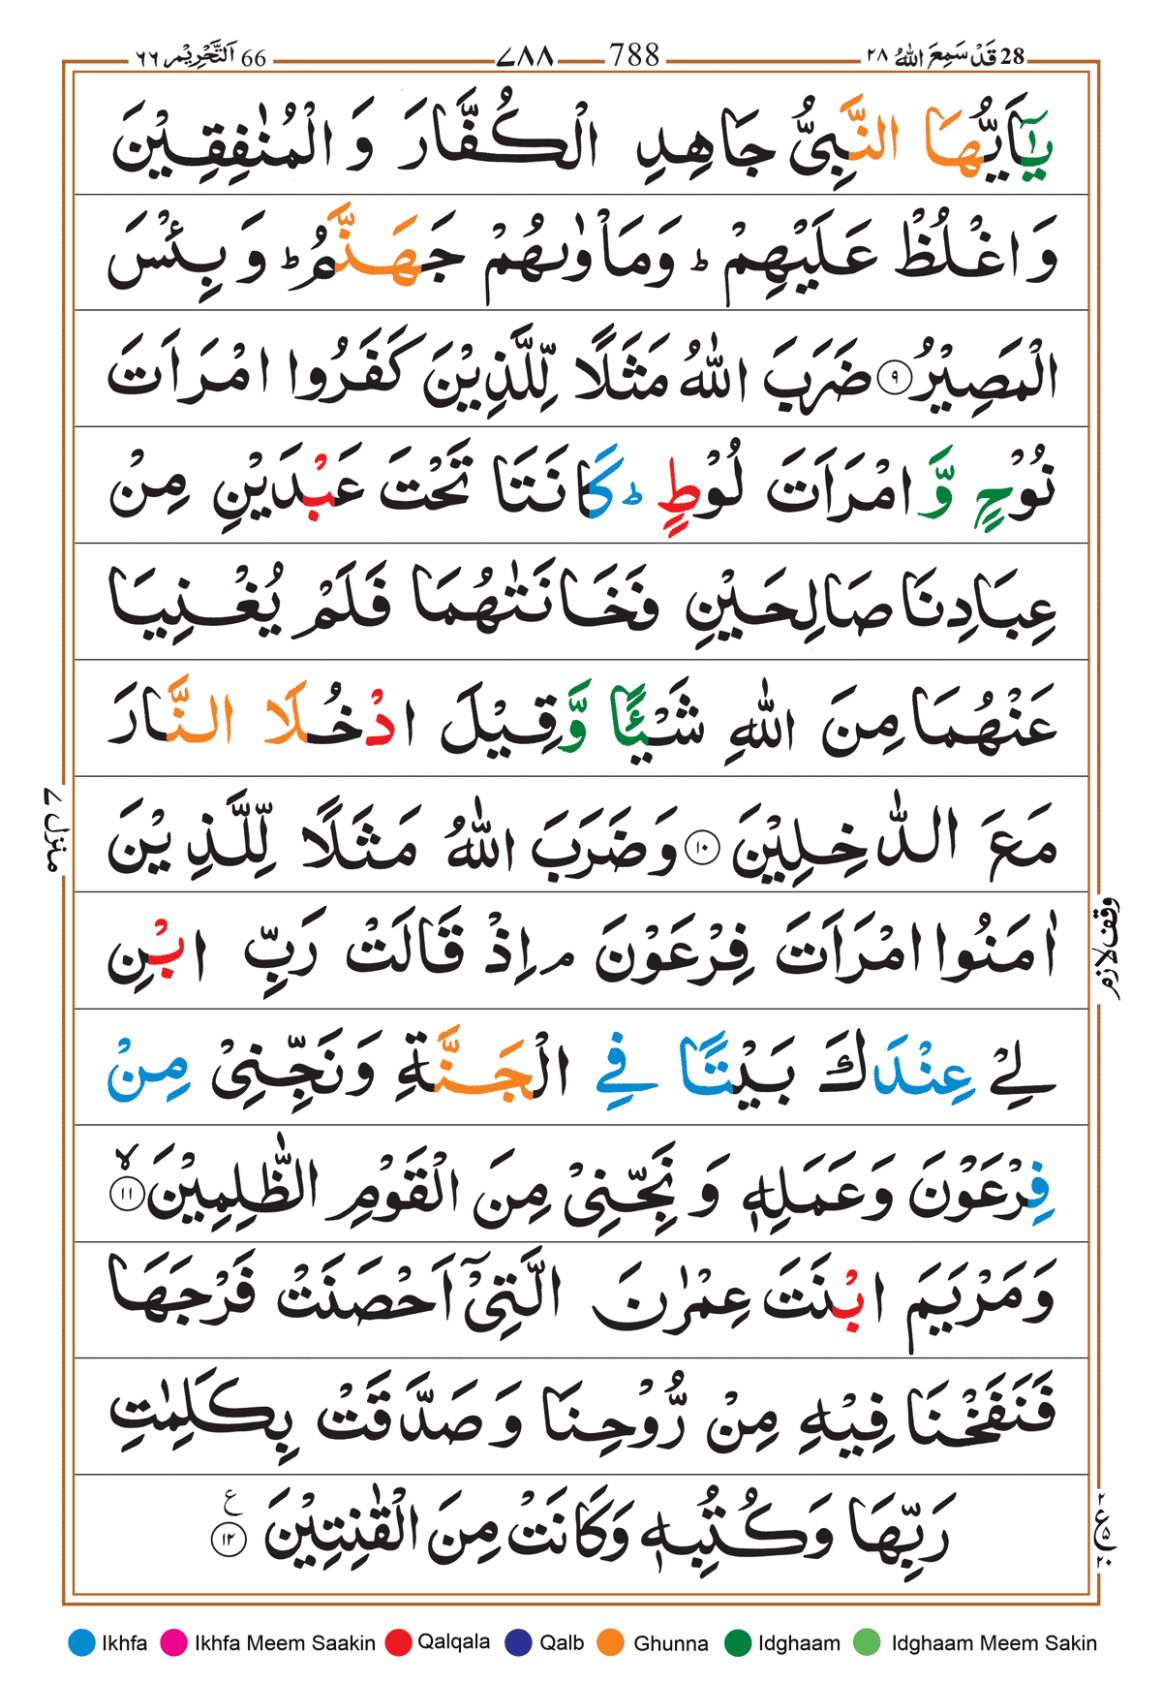 28 قَدْ سَمِعَ اللّٰهُ ٢٨ 788 ٧٨٨ 66 اَلتَّحْرِيْم ٦٦
يٰۤاَيُّهَا النَّبِىُّ جَاهِدِ الْكُفَّارَ وَ الْمُنٰفِقِيْنَ
وَ اغْلُظْ عَلَيْهِمْ ؕ وَمَاْوٰىهُمْ جَهَنَّمُ ؕ وَ بِئْسَ
الْمَصِيْرُ ۹ ضَرَبَ اللّٰهُ مَثَلًا لِّلَّذِيْنَ كَفَرُوا امْرَاَتَ
نُوْحٍ وَّ امْرَاَتَ لُوْطٍ ؕ كَانَتَا تَحْتَ عَبْدَيْنِ مِنْ
عِبَادِنَا صَالِحَيْنِ فَخَانَتٰهُمَا فَلَمْ يُغْنِيَا
عَنْهُمَا مِنَ اللّٰهِ شَيْـًٔا وَّقِيْلَ ادْخُلَا النَّارَ
مَعَ الدّٰخِلِيْنَ ۱۰ وَضَرَبَ اللّٰهُ مَثَلًا لِّلَّذِيْنَ
اٰمَنُوا امْرَاَتَ فِرْعَوْنَ ۘ اِذْ قَالَتْ رَبِّ ابْنِ
لِىْ عِنْدَكَ بَيْتًا فِى الْجَنَّةِ وَنَجِّنِىْ مِنْ
فِرْعَوْنَ وَعَمَلِهٖ وَ نَجِّنِىْ مِنَ الْقَوْمِ الظّٰلِمِيْنَ ۙ ۱۱
وَمَرْيَمَ ابْنَتَ عِمْرٰنَ الَّتِىْۤ اَحْصَنَتْ فَرْجَهَا
فَنَفَخْنَا فِيْهِ مِنْ رُّوْحِنَا وَ صَدَّقَتْ بِكَلِمٰتِ
رَبِّهَا وَكُتُبِهٖ وَكَانَتْ مِنَ الْقٰنِتِيْنَ ۱۲ ع
منزل ٧
وقف لازم
Ikhfa Ikhfa Meem Saakin Qalqala Qalb Ghunna Idghaam Idghaam Meem Sakin